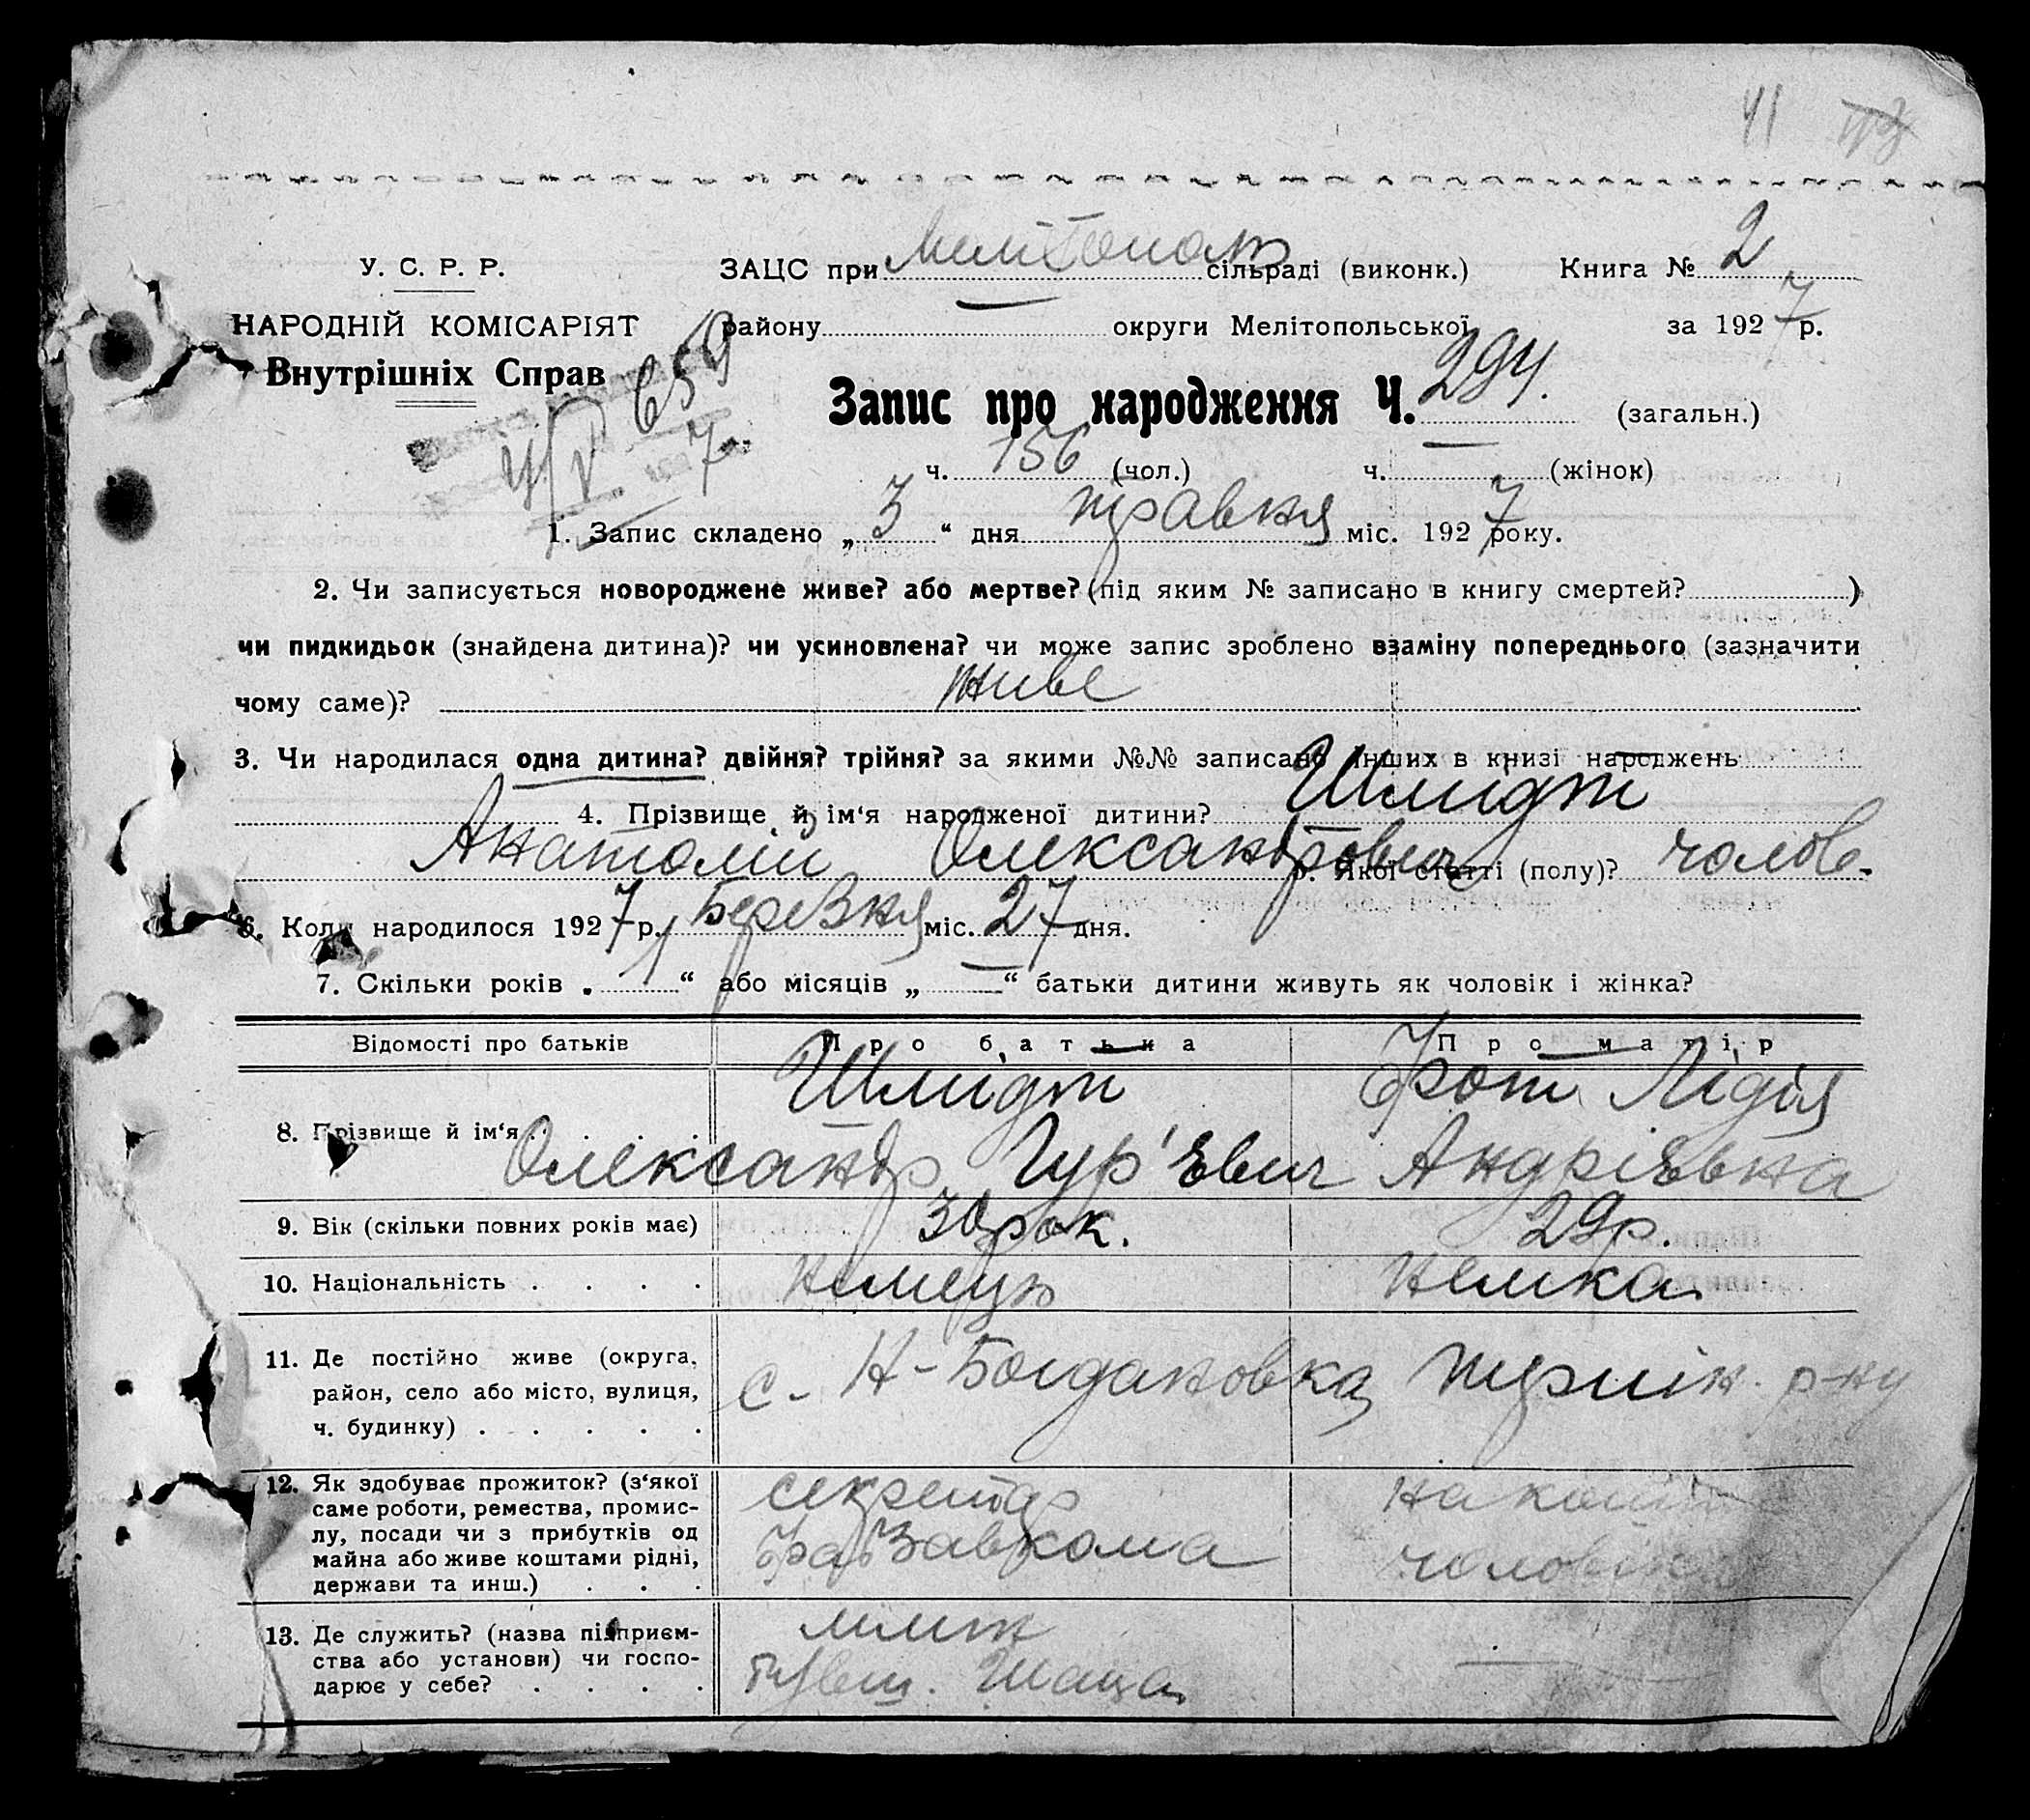 41
У. С. Р. Р.
НАРОДНІЙ КОМІСАРІЯТ
Внутрішніх Справ
659
ЗАЦС при Мелітополь сільраді (виконк.) Книга № 2
району — округи Мелітопольської за 1927 р.
Запис про народження Ч. 294. (загальн.)
ч. 156 (чол.) ч. — (жінок)
4/V 7
1. Запис складено „3“ дня травня міс. 1927 року.
2. Чи записується новороджене живе? або мертве? (під яким № записано в книгу смертей? )
чи пидкидьок (знайдена дитина)? чи усиновлена? чи може запис зроблено взаміну попереднього (зазначити
чому саме)? живе
3. Чи народилася одна дитина? двійня? трійня? за якими №№ записано інших в книзі народжень —
4. Прізвище й ім‘я народженої дитини? Шмидт
Анатолій Олександрович 5. Якої статті (полу)? чолов.
6. Коли народилося 1927 р. Березня міс. 27 дня.
7. Скільки років „1“ або місяців „—“ батьки дитини живуть як чоловік і жінка?
Відомості про батьків Про батька Про матір
8. Прізвище й ім‘я . . . . Шмидт Олександр Гур'євич Фот Лідія Андріївна
9. Вік (скільки повних років має) 30 рок. 29 р.
10. Національність . . . . німець німка
11. Де постійно живе (округа,
район, село або місто, вулиця,
ч. будинку) . . . . .
с. Н-Богдановка, р-ну
12. Як здобуває прожиток? (з‘якої
саме роботи, ремества, промис-
лу, посади чи з прибутків од
майна або живе коштами рідні,
держави та инш.) . . .
секретар
на кошт
чоловіка
13. Де служить? (назва підприєм-
ства або установи) чи госпо-
дарює у себе? . . . .
—